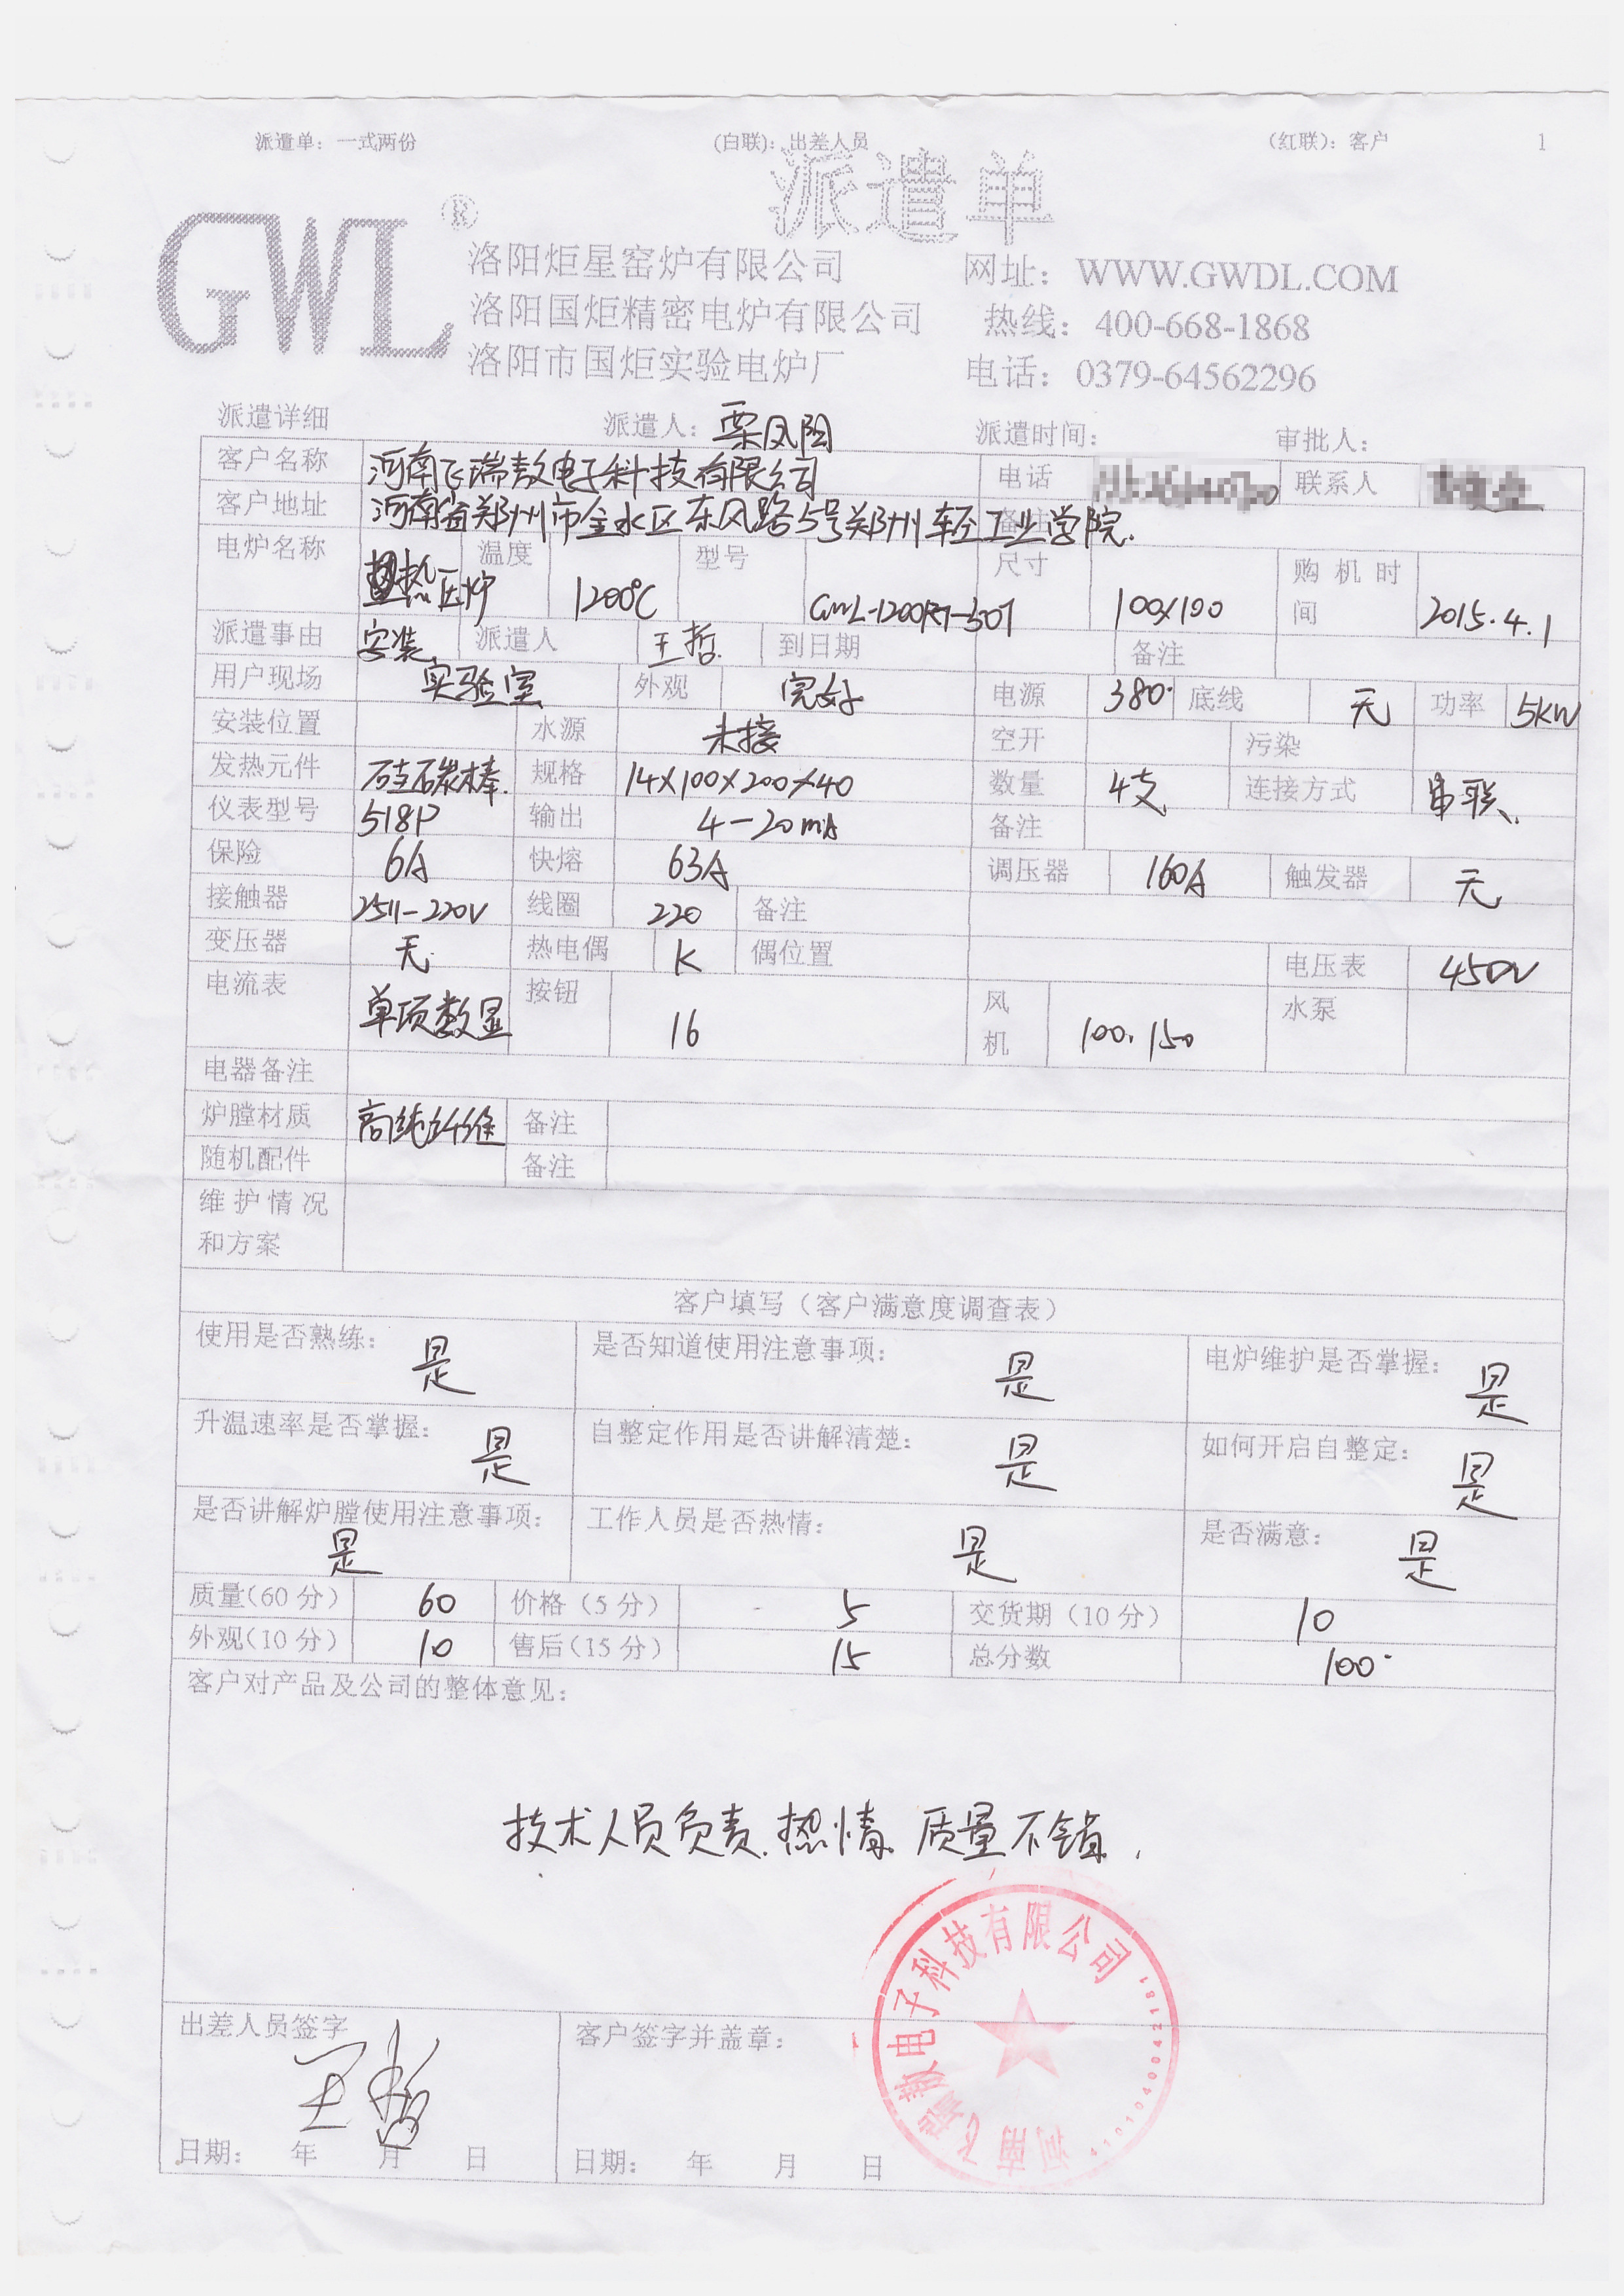 派遣单：一式两份 (白联)：出差人员 （红联）：客户 1
派遣单
GWL®
洛阳炬星窑炉有限公司 网址：WWW.GWDL.COM
洛阳国炬精密电炉有限公司 热线：400-668-1868
洛阳市国炬实验电炉厂 电话：0379-64562296
派遣详细 派遣人：栗风阳 派遣时间： 审批人：
客户名称 河南飞瑞敖电子科技有限公司 电话 联系人
客户地址 河南省郑州市金水区东风路5号郑州轻工业学院. 备注
电炉名称 热压炉 温度 1200℃ 型号 尺寸 100×100 购机时间 2015.4.1
派遣事由 安装 派遣人 王哲 到日期 备注
用户现场 实验室 外观 完好 电源 380 底线 无 功率 5KW
安装位置 水源 未接 空开 污染
发热元件 棒 规格 14×100×200×40 数量 4支 连接方式 串联
仪表型号 518P 输出 4-20mA 备注
保险 6A 快熔 63A 调压器 160A 触发器 无
接触器 2511-220V 线圈 220 备注
变压器 无 热电偶 K 偶位置 电压表 450V
电流表 单项数显 按钮 16 风机 100.150 水泵
电器备注
炉膛材质 高纯纤维 备注
随机配件 备注
维护情况和方案
客户填写（客户满意度调查表）
使用是否熟练：是 是否知道使用注意事项：是 电炉维护是否掌握：是
升温速率是否掌握：是 自整定作用是否讲解清楚：是 如何开启自整定：是
是否讲解炉膛使用注意事项：是 工作人员是否热情：是 是否满意：是
质量(60分) 60 价格（5分） 5 交货期（10分） 10
外观(10分) 10 售后(15分) 15 总分数 100
客户对产品及公司的整体意见：
技术人员负责.热情.质量不错.
河南飞瑞敖电子科技有限公司
出差人员签字 王哲 客户签字并盖章：
日期： 年 月 日 日期： 年 月 日